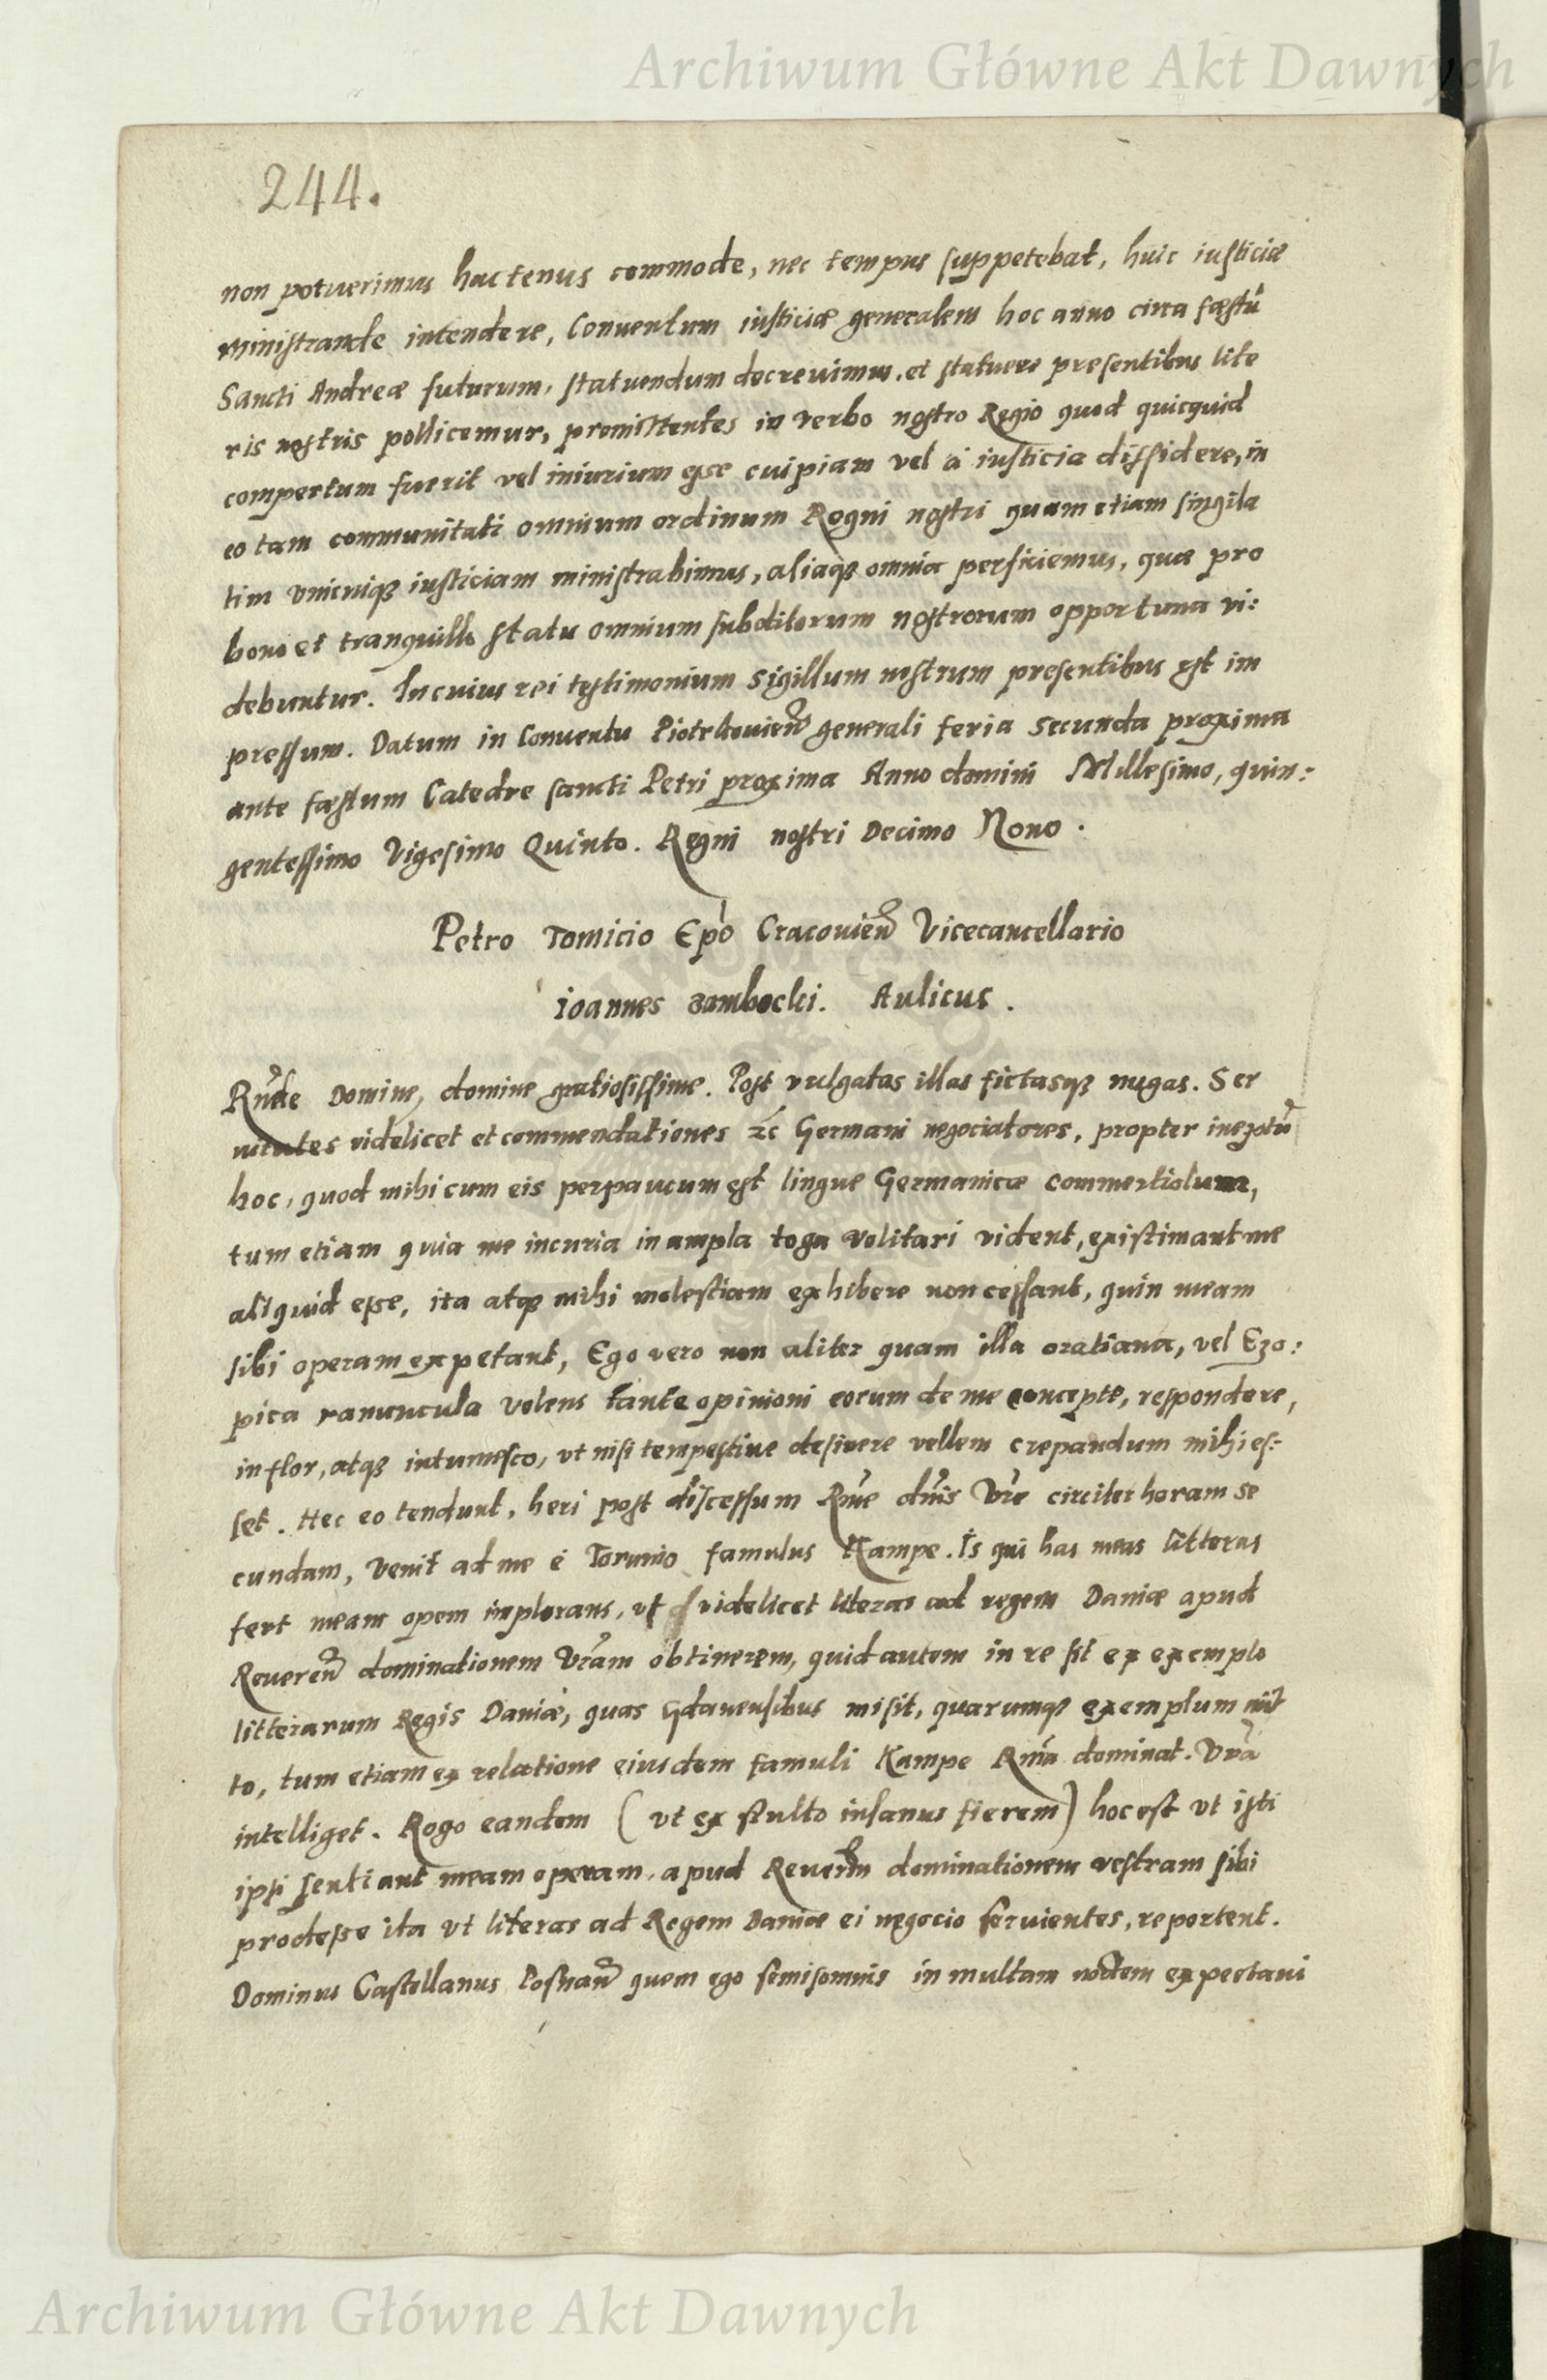 Archiwum Główne Akt Dawnych
244.
non potuerimus hactenus commode, nec tempus suppetebat, huic iusticiæ
ministrande intendere, Conuentum iusticiæ generalem hoc anno circa fæstū
Sancti Andreæ futurum, statuendum decreuimus, et statuere presentibus lite
ris nostris pollicemur, promittentes in verbo nostro Regio quod quicquid
compertum fuerit vel iniurium esse cuipiam vel a iusticia dissidere, in
eo tam communitati omnium ordinum Regni nostri quam etiam singila
tim vnicuiqz iusticiam ministrabimus, aliaqz omnia perficiemus, quæ pro
bono et tranquillo statu omnium subditorum nostrorum opportuna vi:
debuntur. In cuius rei testimonium sigillum nostrum presentibus est im
pressum. Datum in Conuentu Piotrkouieñ generali feria secunda proxima
ante fæstum Catedre sancti Petri proxima Anno domini Millesimo, quin:
gentessimo Vigesimo Quinto. Regni nostri Decimo Nono.
Petro Tomicio Epo Cracouieñ Vicecancellario
Ioannes Zambocki. Aulicus.
Rnde Domine, domine gratiosissime. Post vulgatas illas fictasqz nugas. Ser
uitutes videlicet et commendationes zc Germani negociatores, propter ineptū
hoc, quod mihi cum eis perpaucum est lingue Germanicæ commertiolum,
tum etiam quia me incuria in ampla toga volitari vident, existimant me
aliquid esse, ita atqz mihi molestiam exhibere non cessant, quin meam
sibi operam expetant, Ego vero non aliter quam illa oratiana, vel Ezo:
pica ranuncula volens tante opinioni eorum de me concepte, respondere,
inflor, atqz intumesco, vt nisi tempestiue desinere vellem crepandum mihi es:
set. Hec eo tendunt, heri post discessum Rme dnis Vre circiter horam se
cundam, venit ad me e Torunio famulus Kampe. Is qui has meas litteras
fert meam opem implorans, vt videlicet literas ad regem Daniæ apud
Reuereñ dominationem Vram obtinerem, quid autem in re sit ex exemplo
litterarum Regis Daniæ, quas Gdanensibus misit, quarumqz exemplum mit
to, tum etiam ex relatione eiusdem famuli Kampe Rma dominat. Vra
intelliget. Rogo eandem (vt ex stulto insanus fierem) hoc est vt isti
ipsi sentiant meam operam, apud Reuerm dominationem vestram sibi
prodesse ita vt literas ad Regem Daniæ ei negocio seruientes, reportent.
Dominus Castellanus Posnañ quem ego semisomnis in multam noctem expectaui
Archiwum Główne Akt Dawnych